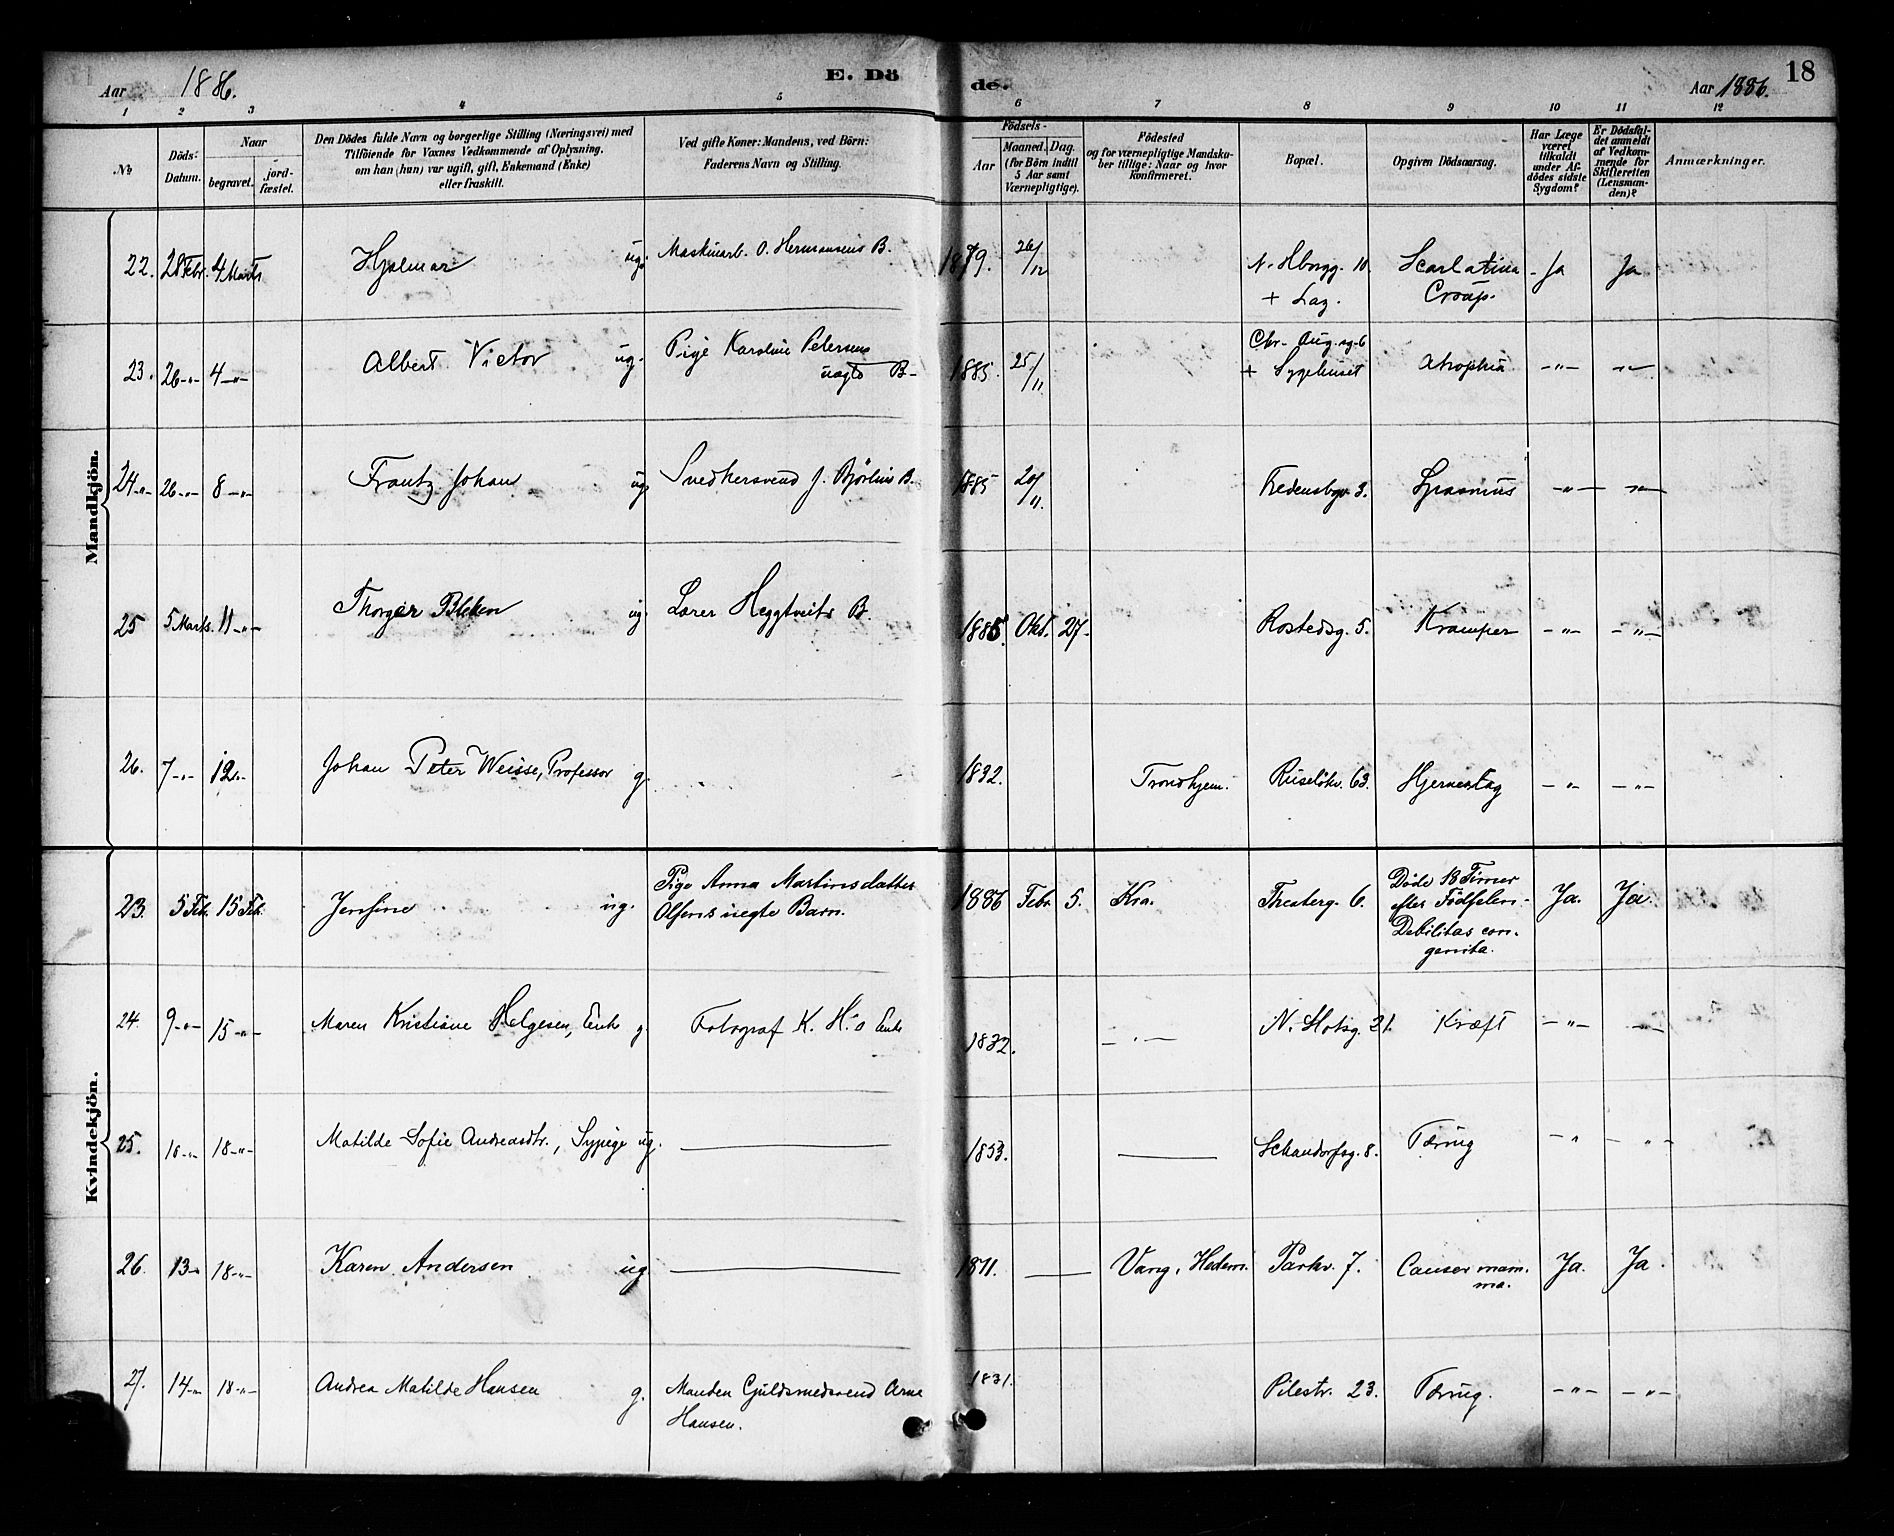 Aar 1886.
E. Döde.
Aar 1886.
18
1 2 3 4 5 6 7 8 9 10 11 12
No
Döds-Datum.
Naar
begravet.
jordfæstet.
Den Dödes fulde Navn og borgerlige Stilling (Næringsvei) med
Tilföiende for Voxnes Vedkommende af Oplysning,
om han (hun) var ugift, gift, Enkemand (Enke)
eller fraskilt.
Ved gifte Koner: Mandens, ved Börn:
Faderens Navn og Stilling.
Födsels-
Aar
Maaned. Dag.
(for Börn indtil
5 Aar samt
Værnepligtige).
Födested
og for værnepligtige Mandskaber tillige: Naar og hvor
Konfirmeret.
Bopæl.
Opgiven Dödsaarsag.
Har Læge
været
tilkaldt
under Afdödes sidste
Sygdom?
Er Dödsfaldet anmeldt
af Vedkommende for
Skifteretten
(Lensmanden)?
Anmærkninger.
Mandkjön.
22. 28 Febr. 4 Marts Hjalmar ug. Maskinarb. O. Hermansens B. 1879. 26/12 N. Hbergg. 10. + Laz. Scarlatina Croup. Ja Ja
23. 26 -"- 4 -"- Albert Victor ug. Pige Karoline Petersens uægte B- 1885. 25/11 Chr. Aug. sg. 6 + Sygehuset Atrophia -"- -"-
24 -"- 26 -"- 8 -"- Frantz Johan ug. Snedkersvend J. Bjørlins B. 1885 20/11. Fredensbgv. 3. -"- -"-
25 5 Marts. 11 -"- Thorgeir Bleken ug. Lærer Heggtveits B. 1885. Okt. 27- Rostedsg. 5. Kramper -"- -"-
26. 7 -"- 12 -"- Johan Peter Weisse, Professor g. 1832. Trondhjem. Ruseløkv. 63. Hjerneslag -"- -"-
Kvindekjön.
23. 5 Feb. 15 Feb. Jensine ug. Pige Anna Martinsdatter Olsens uegte Barn. 1886 Febr. 5. Kra. Theaterg. 6. Døde 18 Timer efter Fødselen- Debilitas congenita. Ja. Ja.
24. 9 -"- 15 -"- Maren Kristiane Helgesen, Enke g. Fotograf K. H.s Enke 1832. -"- N. Slotsg. 21. Kræft -"- -"-
25. 10 -"- 18 -"- Matilde Sofie Andreasdtr., Sypige ug. 1853. Schandorfsg. 8. Tæring -"- -"-
26. 13 -"- 18 -"- Karen Andersen ug. 1811. Vang, Hedem. Parkv. 7. Cancer mamma. Ja. Ja.
27. 14 -"- 18 -"- Andrea Matilde Hansen g. Manden Guldsmedsvend Arne Hansen. 1831. Pilestr. 23. Tæring. -"- -"-